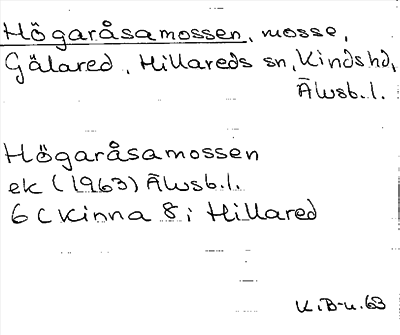 Högaråsamossen, mosse,
Gälared, Hillareds sn, Kinds hd,
Älvsb. l.
Högaråsamossen
ek (1963) Älvsb. l.
6 C Kinna 8 i Hillared
K.iB-u. 63